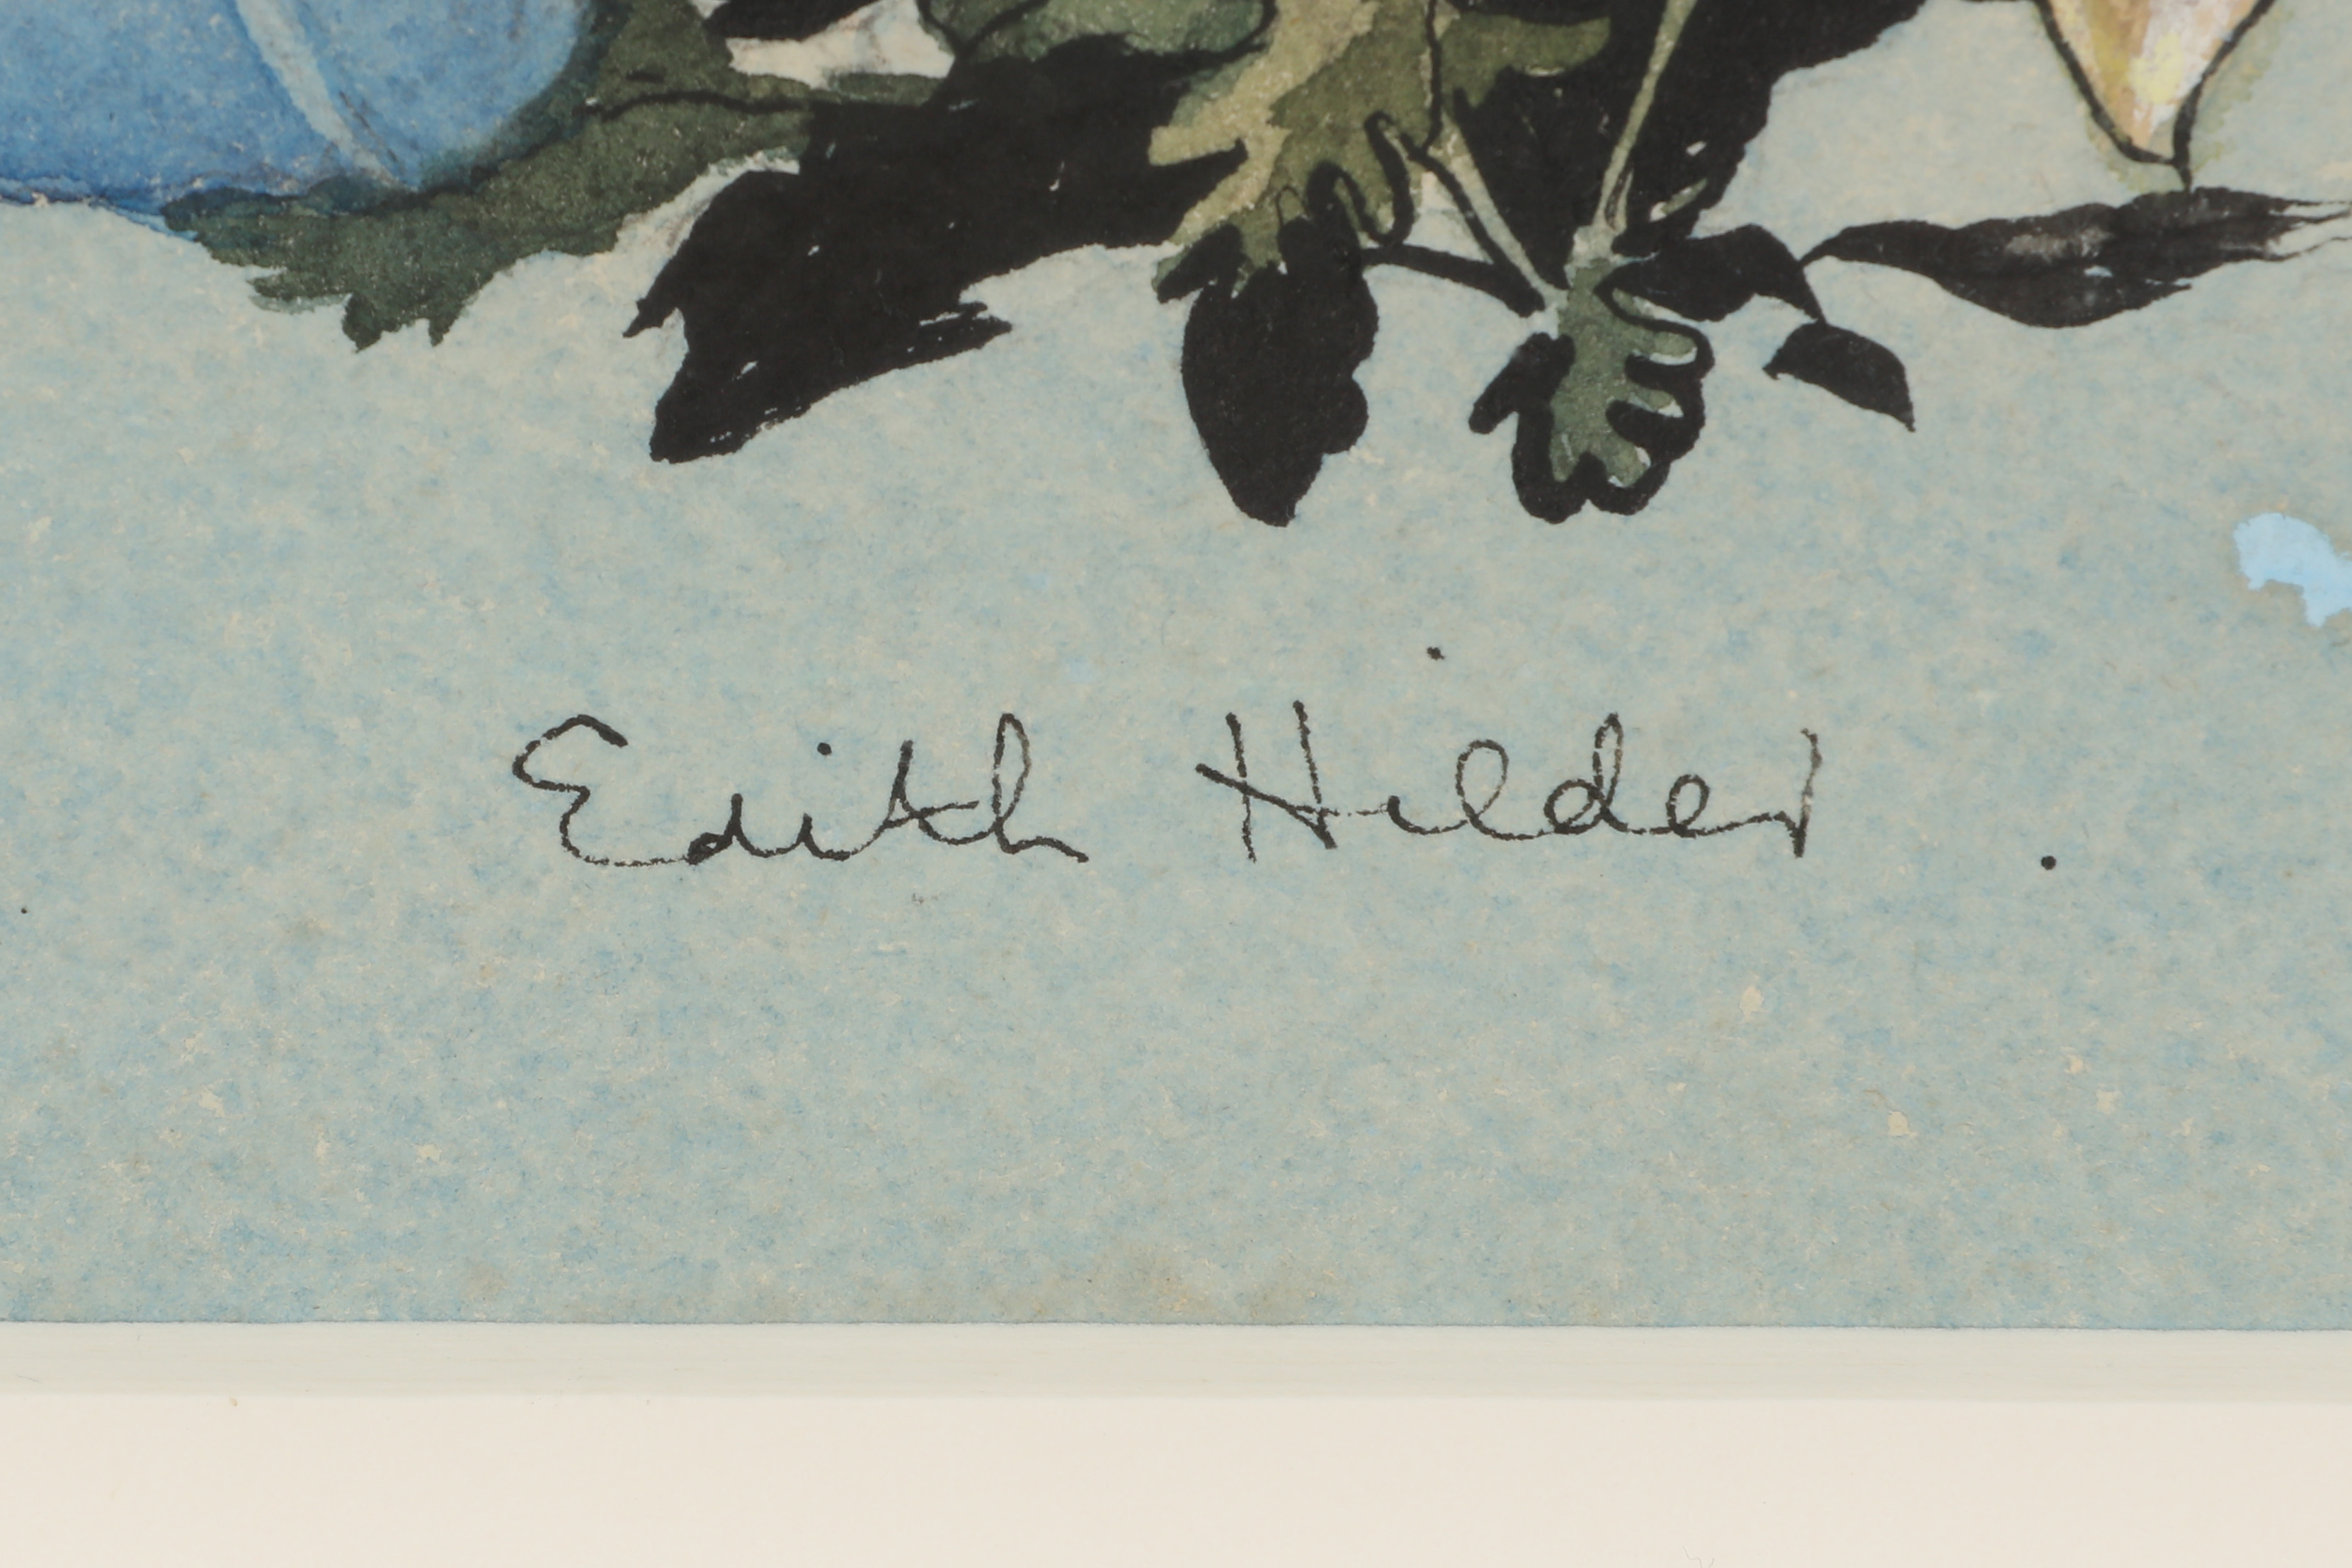 Edith Hilder